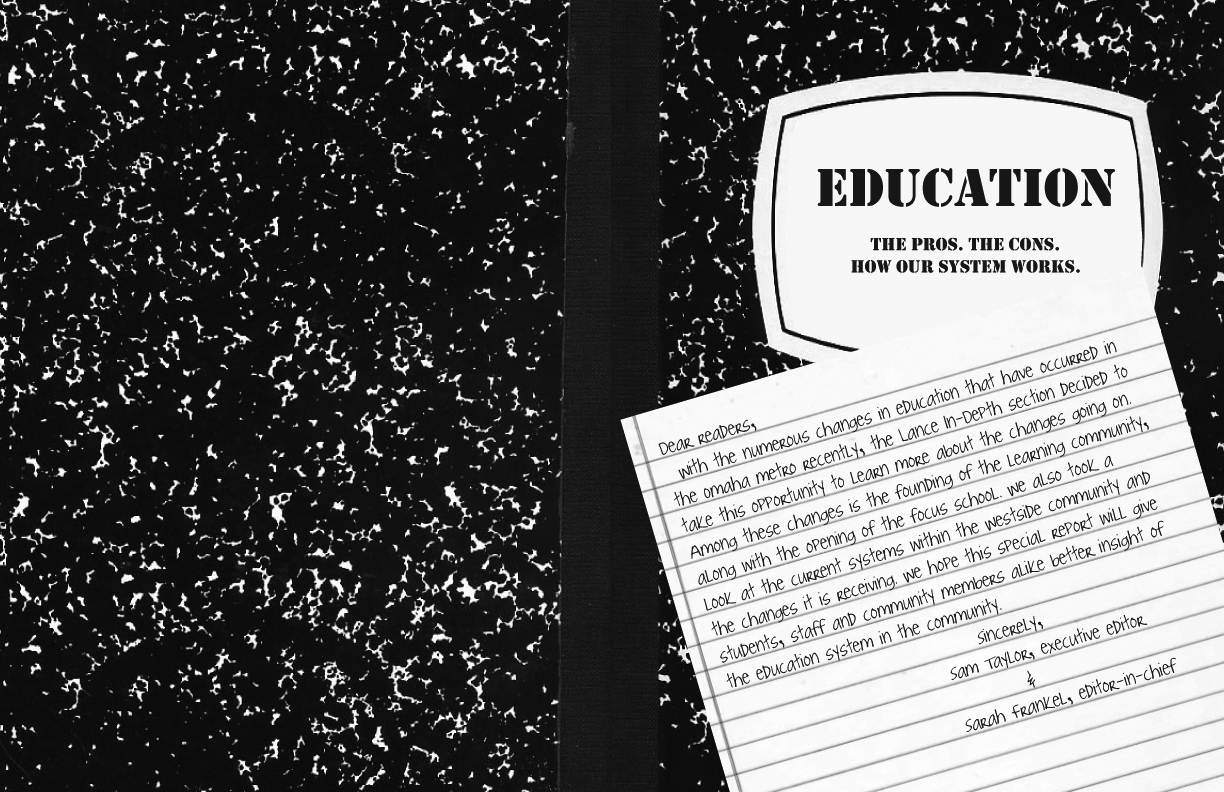 EDUCATION
THE PROS. THE CONS.
HOW OUR SYSTEM WORKS.
Dear readers,
with the numerous changes in education that have occurred in
the omaha metro recently, the Lance In-Depth section decided to
take this opportunity to learn more about the changes going on.
Among these changes is the founding of the learning community,
along with the opening of the focus school. we also took a
look at the current systems within the westside community and
the changes it is receiving. we hope this special report will give
students, staff and community members alike better insight of
the education system in the community.
sincerely,
sam taylor, executive editor
&
sarah frankel, editor-in-chief